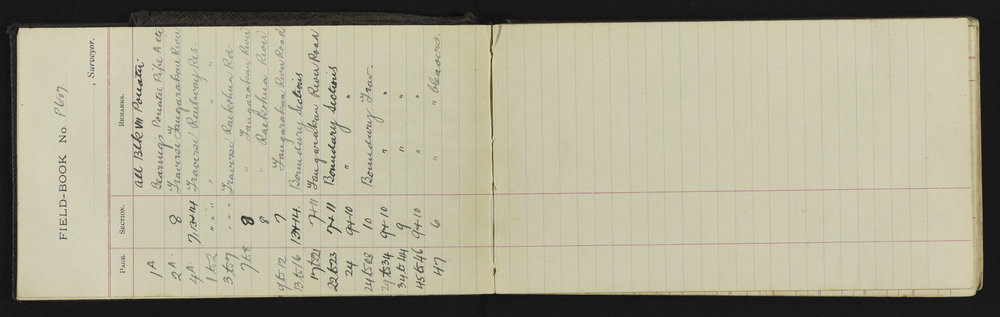 FIELD-BOOK No. P687
, Surveyor.
PAGE. SECTION. REMARKS.
All Blk VII Pouatu
1A Bearings Pouatu Pipe A etc
2A 8 Traverse Tangarakau River
4A 7, 13+14 Traverse Railway Res.
1 to 2 " " " " "
3 to 7 " " " Traverse Raekohua Rd
7 to 8 8 " Tangarakau River
8 " Raekohua River
9 to 12 7 Tangarakau River Road
13 to 16 13+14 Boundary Sections
17 to 21 7+11 Tangarakau River Road
22 to 23 7+11 Boundary Sections
24 9+10 " "
24 to 28 10 Boundary Trav
29 to 34 9+10 " "
34 to 44 9 " "
45 to 46 9+10 "
47 6 " "